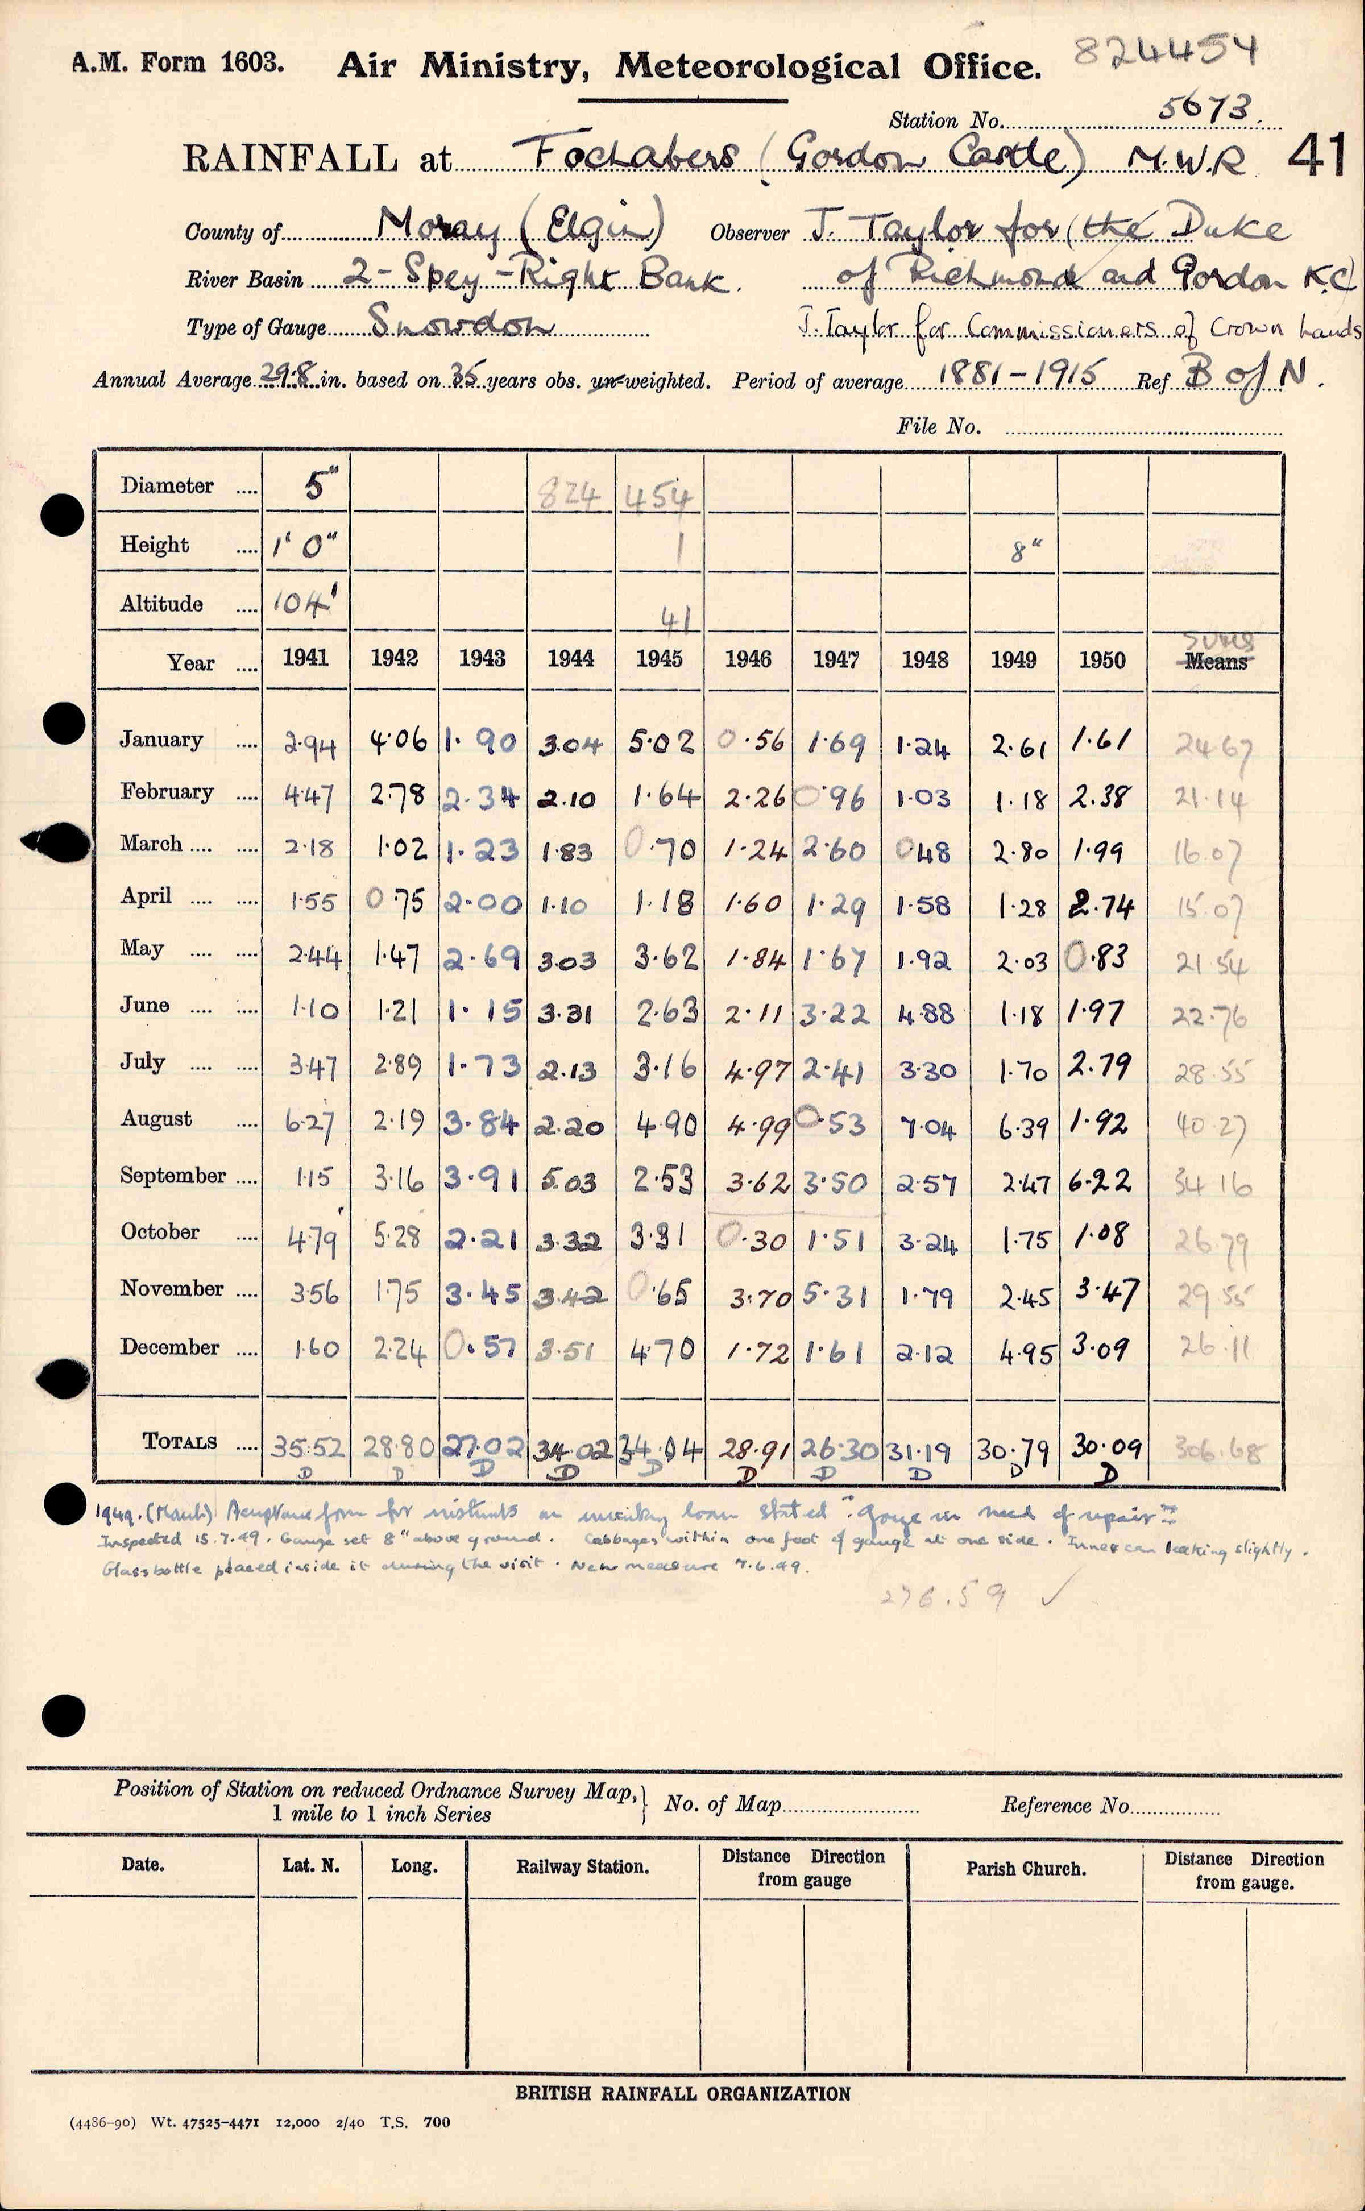 A.M. Form 1603. Air Ministry, Meteorological Office. 824454
Station No. 5673.
RAINFALL at Fochabers (Gordon Castle) M.W.R 41
County of Moray (Elgin) Observer J. Taylor for (the Duke
River Basin 2 - Spey - Right Bank. of Richmond and Gordon K.C)
Type of Gauge Snowdon J. Taylor for Commissioners of Crown Lands
Annual Average 29.8 in. based on 35 years obs. un-weighted. Period of average 1881-1915 Ref B of N.
File No.
Diameter .... 5" 824 454
Height .... 1' 0" 1 8"
Altitude .... 104' 41
Sums
Year .... 1941 1942 1943 1944 1945 1946 1947 1948 1949 1950 Means
January .... 2.94 4.06 1.90 3.04 5.02 0.56 1.69 1.24 2.61 1.61 24.67
February .... 4.47 2.78 2.34 2.10 1.64 2.26 0.96 1.03 1.18 2.38 21.14
March .... .... 2.18 1.02 1.23 1.83 0.70 1.24 2.60 0.48 2.80 1.99 16.07
April .... .... 1.55 0.75 2.00 1.10 1.18 1.60 1.29 1.58 1.28 2.74 15.07
May .... .... 2.44 1.47 2.69 3.03 3.62 1.84 1.67 1.92 2.03 0.83 21.54
June .... .... 1.10 1.21 1.15 3.31 2.63 2.11 3.22 4.88 1.18 1.97 22.76
July .... .... 3.47 2.89 1.73 2.13 3.16 4.97 2.41 3.30 1.70 2.79 28.55
August .... 6.27 2.19 3.84 2.20 4.90 4.99 0.53 7.04 6.39 1.92 40.27
September .... 1.15 3.16 3.91 5.03 2.53 3.62 3.50 2.57 2.47 6.22 34.16
October .... 4.79 5.28 2.21 3.32 3.31 0.30 1.51 3.24 1.75 1.08 26.79
November .... 3.56 1.75 3.45 3.42 0.65 3.70 5.31 1.79 2.45 3.47 29.55
December .... 1.60 2.24 0.57 3.51 4.70 1.72 1.61 2.12 4.95 3.09 26.11
TOTALS .... 35.52 28.80 27.02 34.02 34.04 28.91 26.30 31.19 30.79 30.09 306.68
D D D D D D D D D D
1949. (March) Acceptance form for instruments on loan stated "Gauge in need of repair"
Inspected 15.7.49. Gauge set 8" above ground. Cabbages within one foot of gauge at one side. Inner can leaking slightly.
Glass bottle placed inside it during the visit. New measure 7.6.49.
276.59 ✓
Position of Station on reduced Ordnance Survey Map, } No. of Map Reference No.
1 mile to 1 inch Series
Date. Lat. N. Long. Railway Station. Distance Direction from gauge Parish Church. Distance Direction from gauge.
BRITISH RAINFALL ORGANIZATION
(4486-90) Wt. 47525-4471 12,000 2/40 T.S. 700